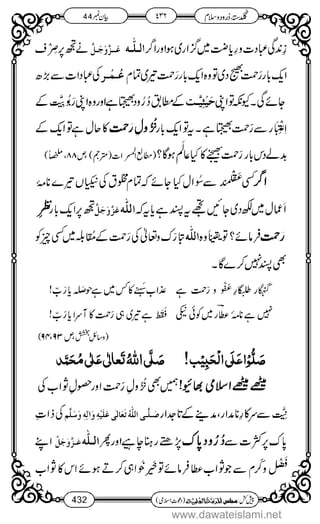 بیان نمبر 44 ۴۳۲ گلدستہ دُرود وسلام
زندگی عبادت وریاضت میں گزاری ہو اور اگر اللہ عَزَّوَجَلَّ نے تجھ پر صرف
ایک بار رحمت بھیج دی تو وہ ایک بار رحمت تیری تمام عمر کی عبادات سے بڑھ
جائے گی۔ کیونکہ تو اپنی حیثیّت کے مطابق دُرود بھیجتا ہے اور وہ اپنی ربوبیّت کے
اعتبار سے رحمت بھیجتا ہے۔ یہ تو ایک بار نُزولِ رحمت کا حال ہے تو ایک کے
بدلے دس بار رحمت بھیجنے کا کیا عالم ہوگا؟ (مطالع المسرات (مترجم)، ص ۸۸، ملخصا)
اگر کسی عقلمند سے سوال کیا جائے کہ تمام مخلوق کی نیکیاں تیرے نامۂ
اعمال میں لکھ دی جائیں تجھے یہ پسند ہے یا یہ کہ اللہ عَزَّوَجَلَّ تجھ پر ایک بار نظرِ
رحمت فرمائے؟ تو یقیناً وہ اللہ تبارک وتعالیٰ کی رحمت کے مقابلے میں کسی چیز کو
بھی پسند نہیں کرے گا۔
گنہگار طلبگارِ عفو و رحمت ہے عذاب سہنے کا کس میں ہے حوصلہ یا رب!
نہیں ہے نامۂ عطار میں کوئی نیکی فقط ہے تیری ہی رحمت کا آسرا یا رب!
(وسائلِ بخشش، ص ۹۳، ۹۴)
صَلُّوْا عَلَی الْحَبِیْب! صَلَّی اللهُ تَعَالٰی عَلٰی مُحَمَّد
میٹھے میٹھے اسلامی بھائیو! ہمیں بھی نُزولِ رحمت اور حصولِ ثواب کی
نیّت سے سرکارِ نامدار، مدینے کے تاجدار صَلَّی اللهُ تَعَالٰی عَلَیْہِ وَاٰلِہٖ وَسَلَّم کی ذات
پاک پر کثرت سے دُرودِ پاک پڑھتے رہنا چاہیے اور پھر اللہ عَزَّوَجَلَّ اپنے
فضل وکرم سے جو ثواب عطا فرمائے تو خیر خواہی کرتے ہوئے اس کا ثواب
432 پیش کش: مجلس المدینۃ العلمیۃ (دعوتِ اسلامی)
www.dawateislami.net